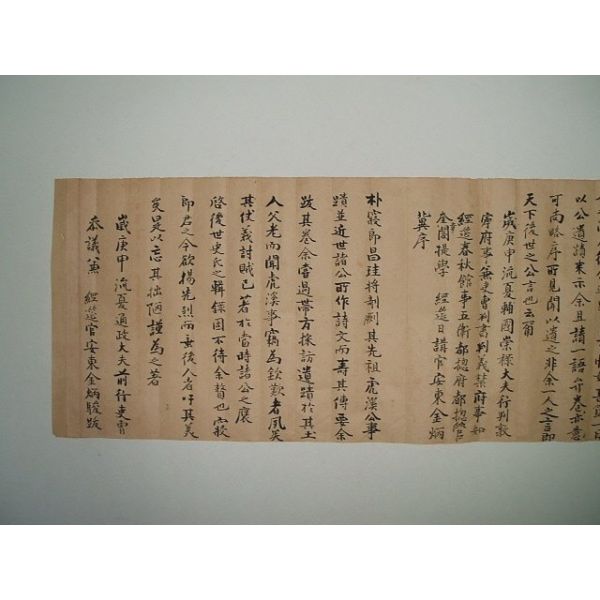 以公遺蹟來示余且請一語弁卷亦意
可尚略序所見聞以遺之非余一人之言即
天下後世之公言也云爾
歲庚申流夏輔國崇祿大夫行判敦
寧府事兼吏曹判書判義禁府事知
經筵春秋館事五衛都摠府都摠管
奎章閣提學 經筵日講官安東金炳
冀序
朴寢郎昌珪將剞劂其先祖虎溪公事
蹟並近世諸公所作詩文而壽其傳要余
跋其卷余嘗過帶方採訪遺蹟於其土
人父老而聞虎溪事竊為欽歎者夙矣
其仗義討賊已著於當時諸公之褒
啓後世史氏之輯錄固不待余贅也寢
郎君之今欲揚先烈而垂後人者吁其義
矣是以忘其拙陋謹為之著
歲庚申流夏通政大夫前行吏曹
參議兼 經筵官安東金炳駿跋